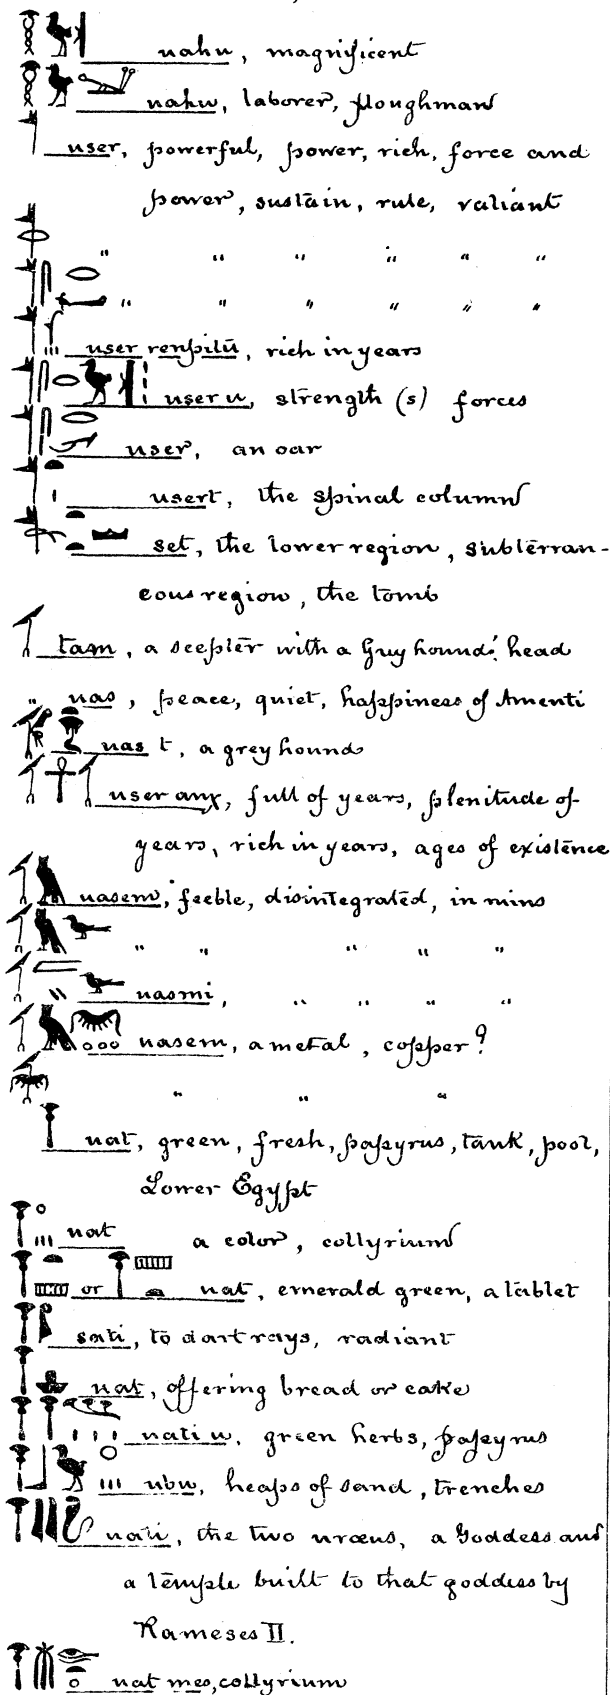 uahu, magnificent
uahu, laborer, ploughman
user, powerful, power, rich, force and
power, sustain, rule, valiant
" " " " " "
" " " " " "
user renpitu, rich in years
user u, strength (s) forces
user, an oar
usert, the spinal column
set, the lower region, subterran-
eous region, the tomb
tam, a scepter with a Greyhound's head
" uas, peace, quiet, happiness of Amenti
uas t, a greyhound
user anχ, full of years, plenitude of
years, rich in years, ages of existence
uasem, feeble, disintegrated, in ruins
" " " " "
uasmi, " " " "
uasem, a metal, copper?
" " "
uat, green, fresh, papyrus, tank, pool,
Lower Egypt
uat a color, collyrium
or uat, emerald green, a tablet
sati, to dart rays, radiant
uat, offering bread or cake
uati u, green herbs, papyrus
ubu, heaps of sand, trenches
uati, the two uræus, a Goddess and
a temple built to that goddess by
Rameses II.
uat mes, collyrium